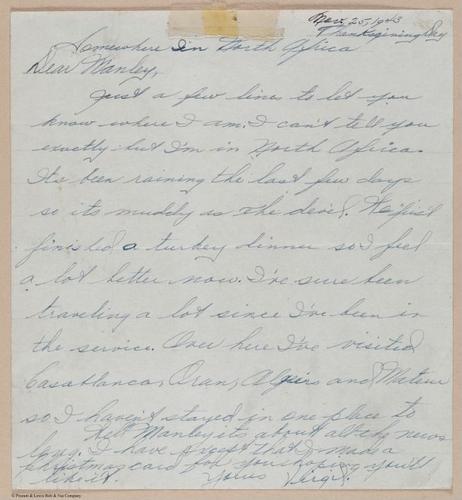 Nov. 25, 1943
Thanksgiving Day
Somewhere In North Africa
Dear Manley,
Just a few lines to let you
know where I am. I can't tell you
exactly but I'm in North Africa.
It's been raining the last few days
so its muddy as the devil. We just
finished a turkey dinner so I feel
a lot better now. I've sure been
traveling a lot since I've been in
the service. Over here I've visited
Casablanca, Oran, Algiers and Mateur
so I haven't stayed in one place to
Well Manley its about all the news
long. I have except that I made a
christmas card for you hoping you'll
like it. Yours Virgil.